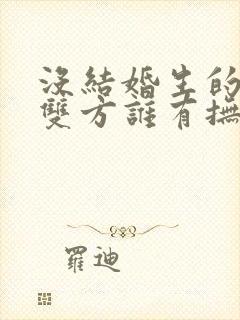 沒結婚生的
雙方誰有撫
羅迪